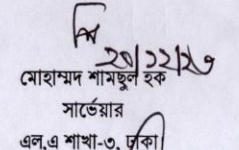 ২০/১২/২৩
মোহাম্মদ শামছুল হক
সার্ভেয়ার
এল,এ শাখা-৩, ঢাকা